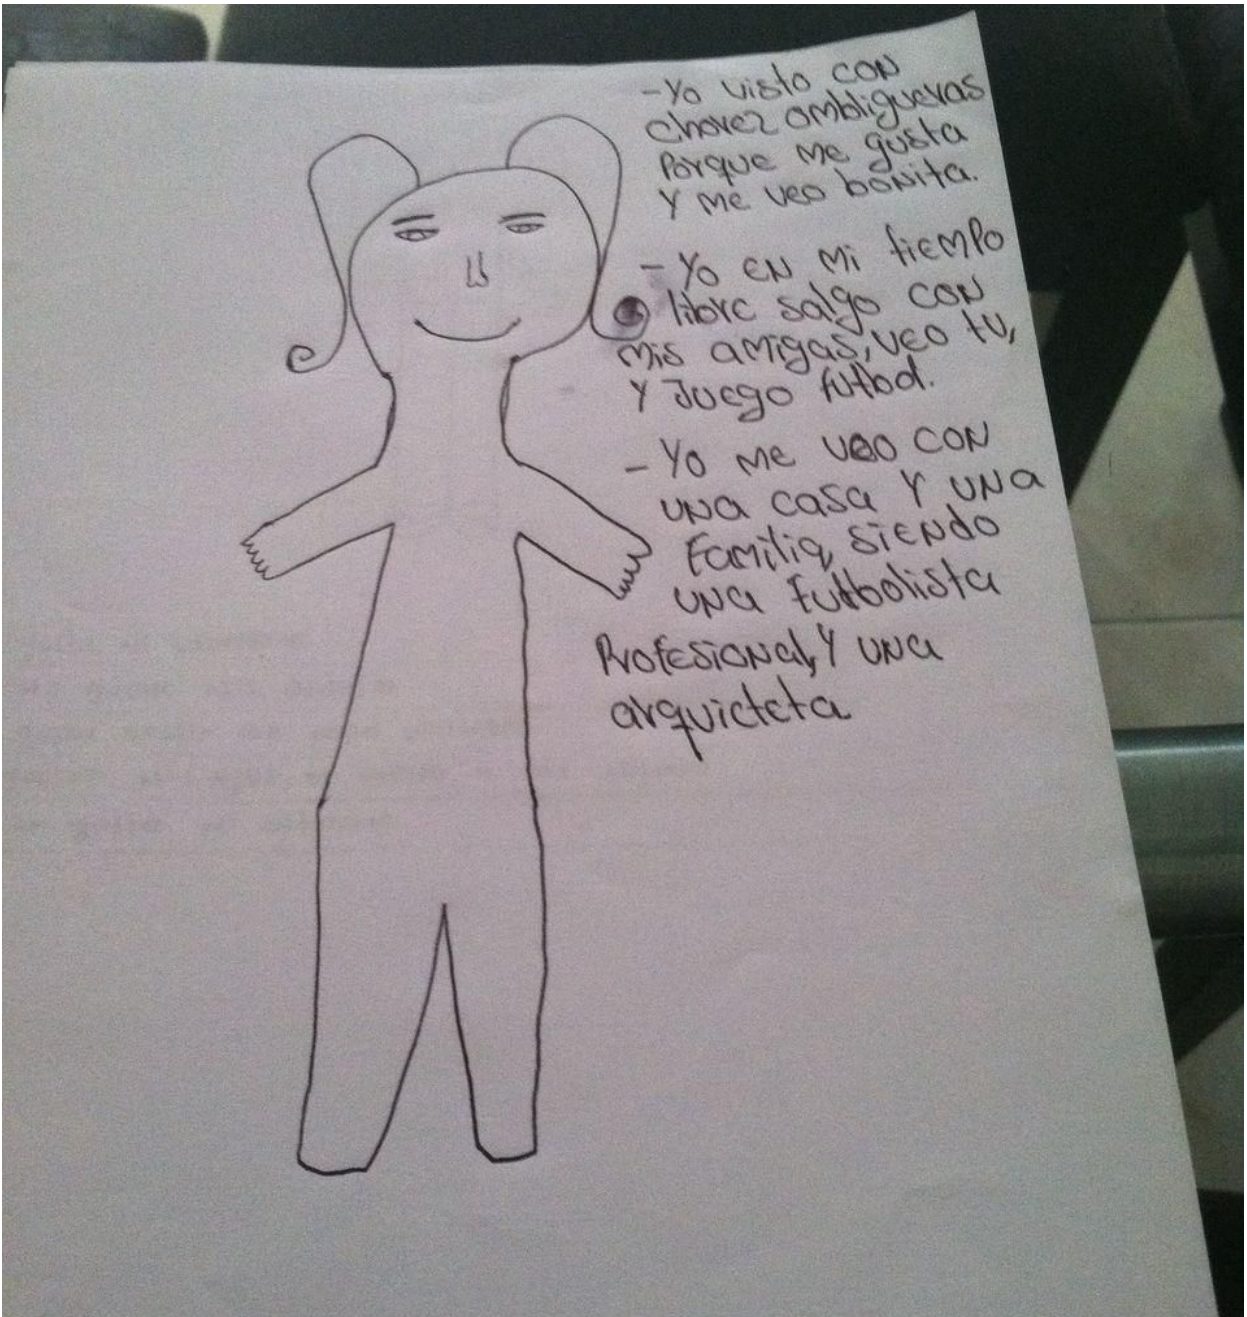 -Yo visto con
chorez ombligueras
Porque me gusta
Y me veo bonita.
- Yo en mi tiempo
libre salgo con
mis amigas, veo tv,
Y Juego futbol.
- Yo me veo con
una casa Y una
Familia, siendo
una futbolista
Profesional, Y una
arquicteta